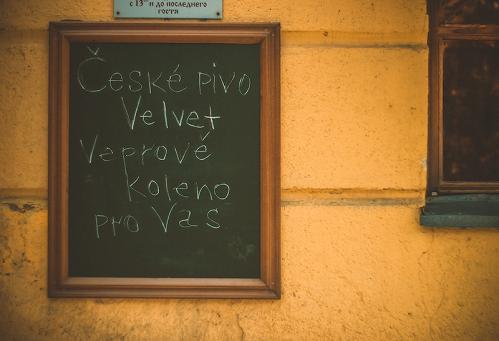 с 13⁰⁰ и до последнего
гостя
České pivo
Velvet
Veprové
Koleno
pro Vas